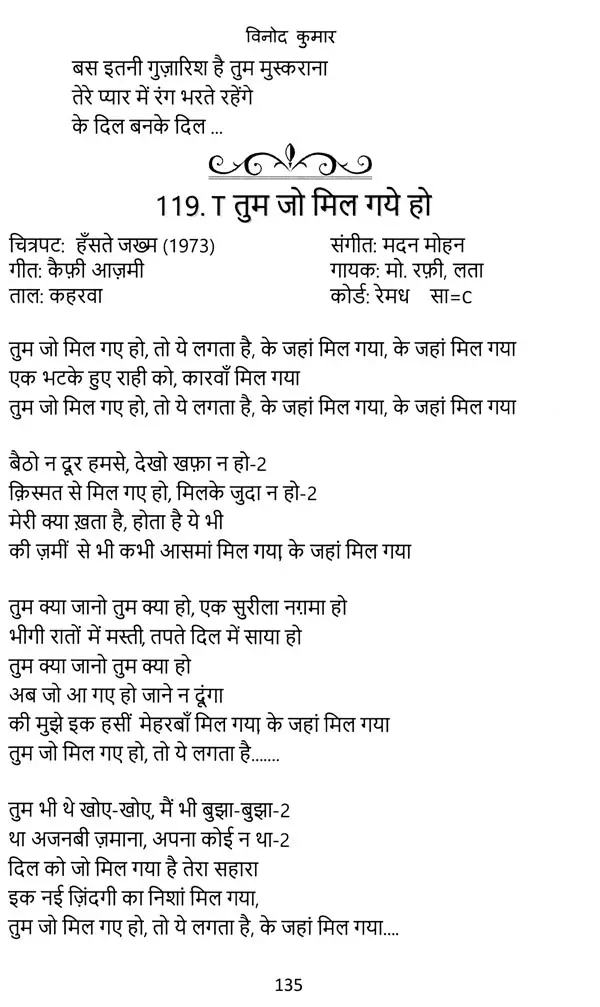 विनोद कुमार
बस इतनी गुज़ारिश है तुम मुस्कराना
तेरे प्यार में रंग भरते रहेंगे
के दिल बनके दिल ...
119. T तुम जो मिल गये हो
चित्रपट: हँसते जख्म (1973) संगीत: मदन मोहन
गीत: कैफ़ी आज़मी गायक: मो. रफ़ी, लता
ताल: कहरवा कोर्ड: रेमध सा=C
तुम जो मिल गए हो, तो ये लगता है, के जहां मिल गया, के जहां मिल गया
एक भटके हुए राही को, कारवाँ मिल गया
तुम जो मिल गए हो, तो ये लगता है, के जहां मिल गया, के जहां मिल गया
बैठो न दूर हमसे, देखो खफ़ा न हो-2
क़िस्मत से मिल गए हो, मिलके जुदा न हो-2
मेरी क्या ख़ता है, होता है ये भी
की ज़मीं से भी कभी आसमां मिल गया, के जहां मिल गया
तुम क्या जानो तुम क्या हो, एक सुरीला नग़मा हो
भीगी रातों में मस्ती, तपते दिल में साया हो
तुम क्या जानो तुम क्या हो
अब जो आ गए हो जाने न दूंगा
की मुझे इक हसीं मेहरबाँ मिल गया, के जहां मिल गया
तुम जो मिल गए हो, तो ये लगता है.......
तुम भी थे खोए-खोए, मैं भी बुझा-बुझा-2
था अजनबी ज़माना, अपना कोई न था-2
दिल को जो मिल गया है तेरा सहारा
इक नई ज़िंदगी का निशां मिल गया,
तुम जो मिल गए हो, तो ये लगता है, के जहां मिल गया....
135